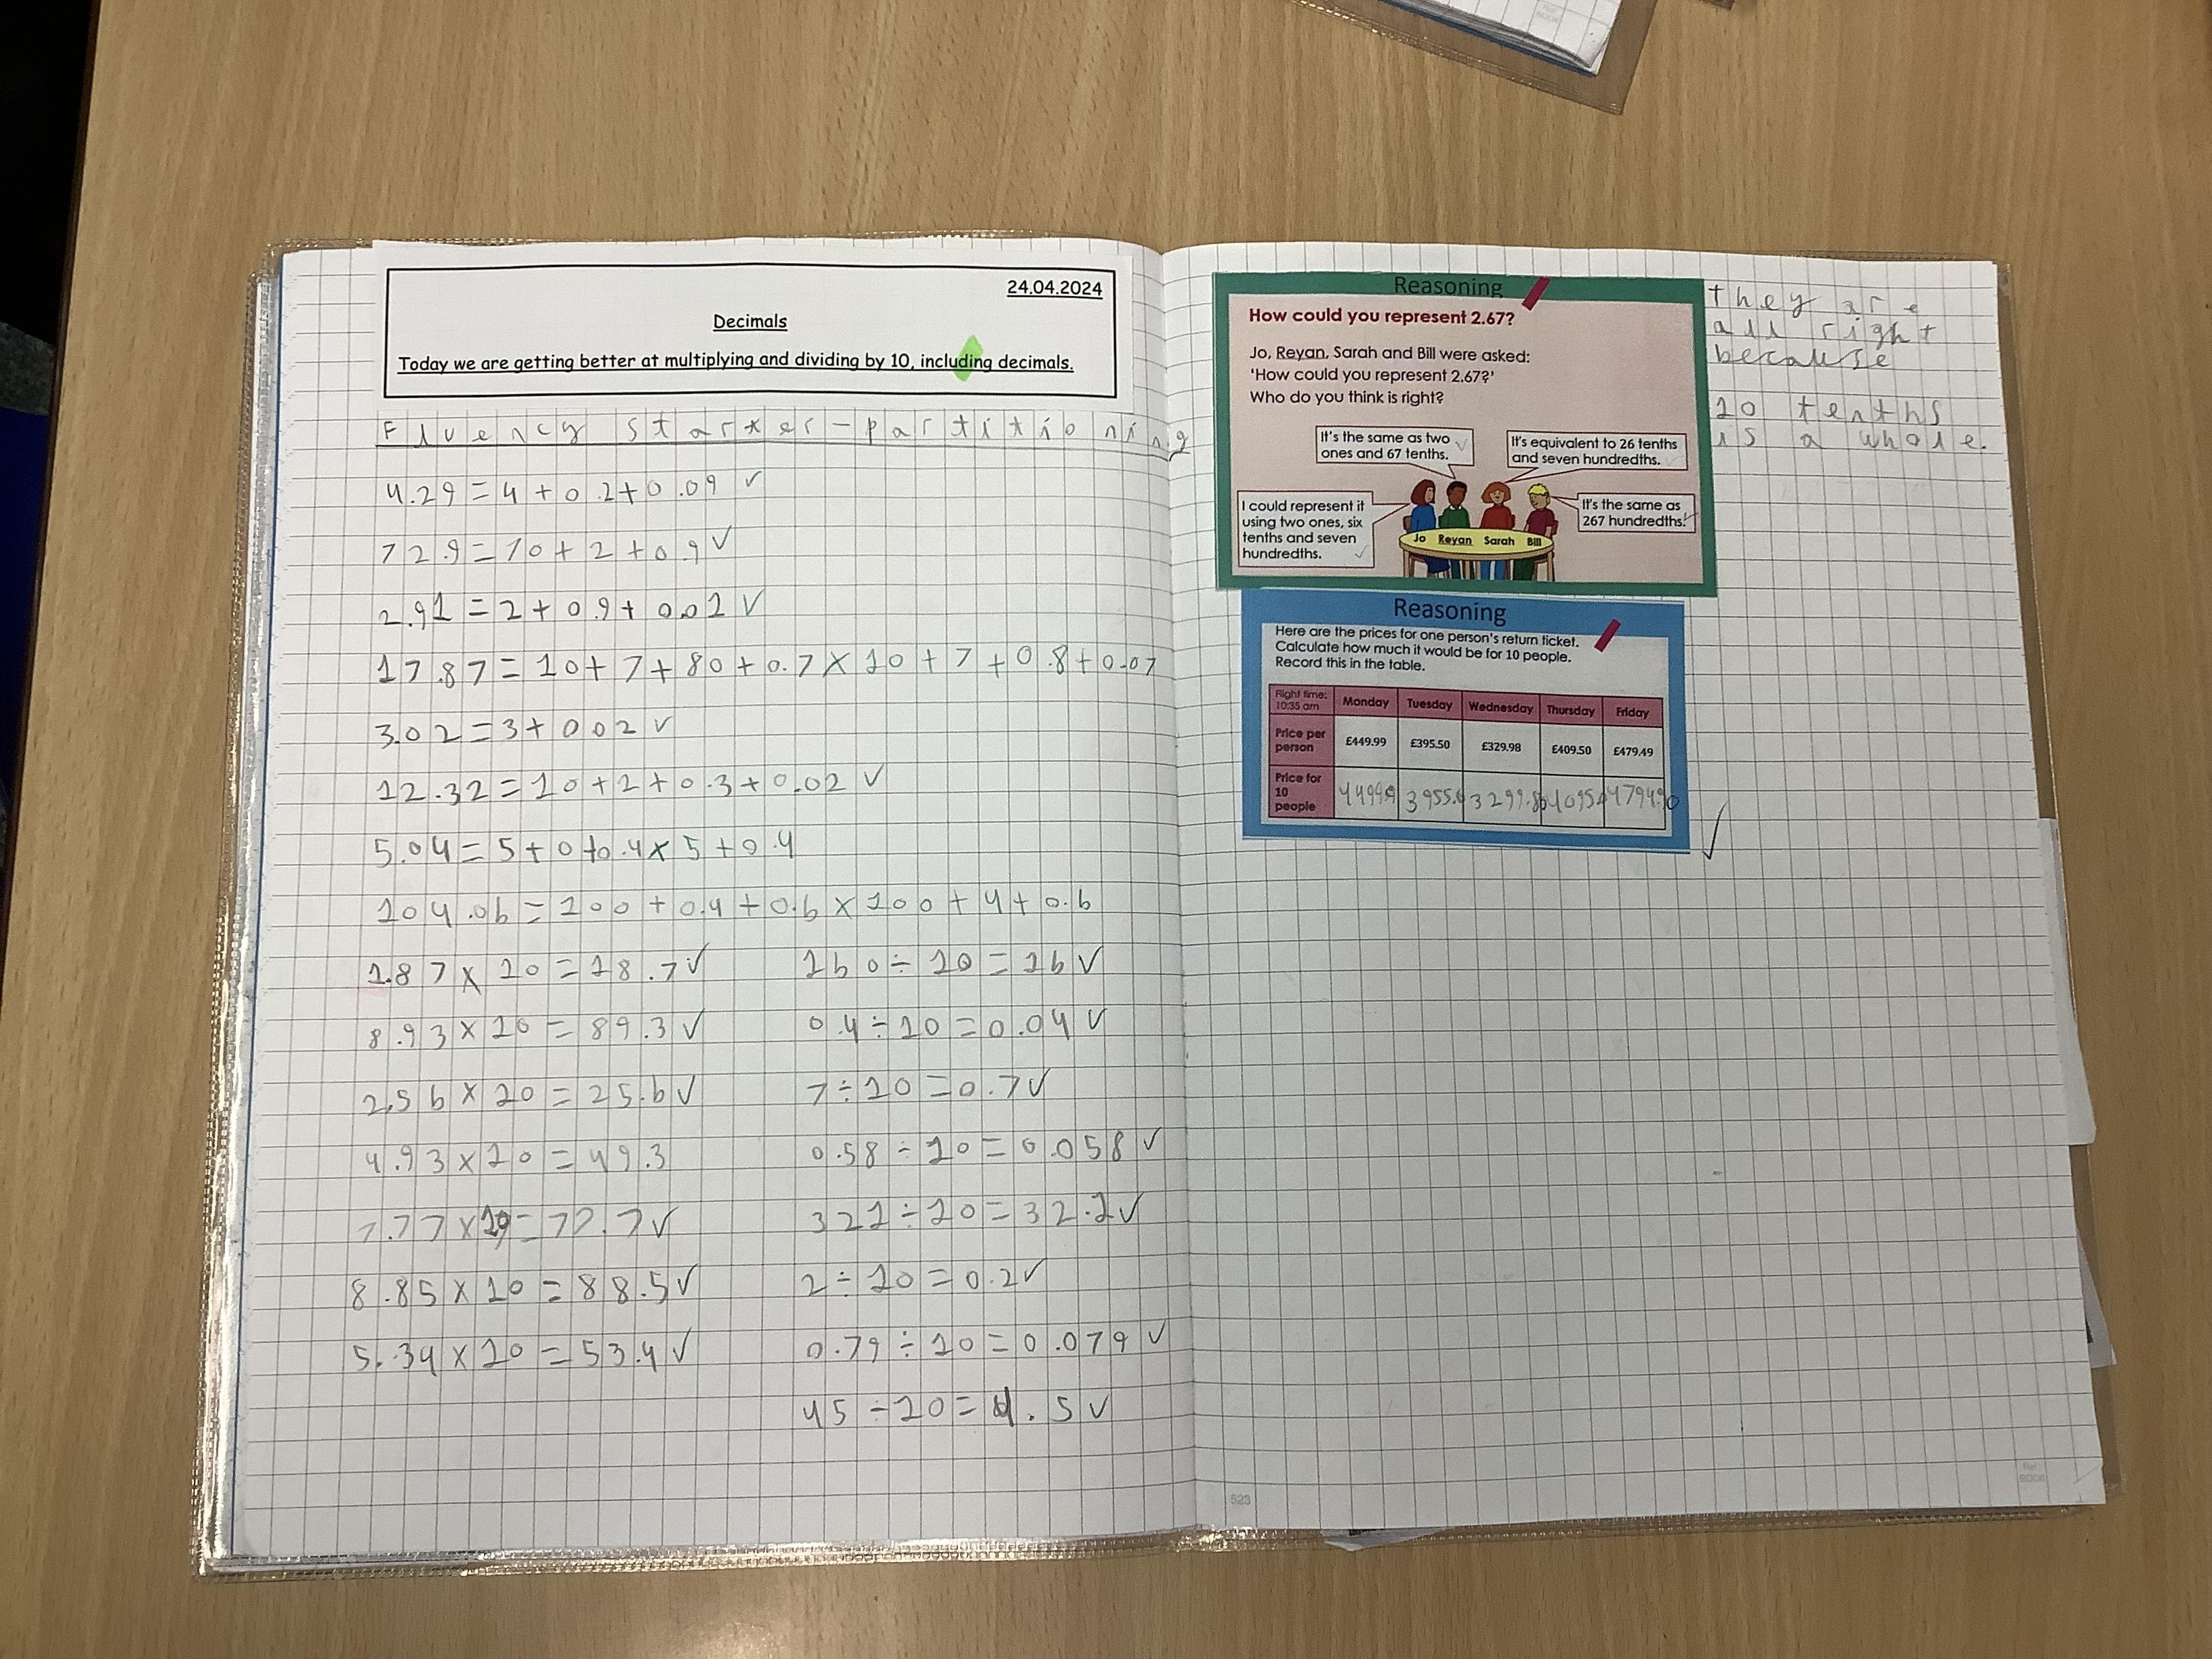 24.04.2024
Decimals
Today we are getting better at multiplying and dividing by 10, including decimals.
Fluency starter - partitioning
4.29 = 4 + 0.2 + 0.09 ✓
72.9 = 70 + 2 + 0.9 ✓
2.91 = 2 + 0.9 + 0.01 ✓
17.87 = 10 + 7 + 80 + 0.7 × 10 + 7 + 0.8 + 0.07
3.02 = 3 + 0.02 ✓
12.32 = 10 + 2 + 0.3 + 0.02 ✓
5.04 = 5 + 0 + 0.4 × 5 + 0.4
104.06 = 100 + 0.4 + 0.6 × 100 + 4 + 0.6
1.87 × 10 = 18.7 ✓
8.93 × 10 = 89.3 ✓
2.56 × 10 = 25.6 ✓
4.93 × 10 = 49.3
7.77 × 10 = 77.7 ✓
8.85 × 10 = 88.5 ✓
5.34 × 10 = 53.4 ✓
160 ÷ 10 = 16 ✓
0.4 ÷ 10 = 0.04 ✓
7 ÷ 10 = 0.7 ✓
0.58 ÷ 10 = 0.058 ✓
321 ÷ 10 = 32.1 ✓
2 ÷ 10 = 0.2 ✓
0.79 ÷ 10 = 0.079 ✓
45 ÷ 10 = 4.5 ✓
Reasoning
How could you represent 2.67?
Jo, Reyan, Sarah and Bill were asked:
'How could you represent 2.67?'
Who do you think is right?
It's the same as two ✓
ones and 67 tenths.
It's equivalent to 26 tenths
and seven hundredths.
I could represent it
using two ones, six
tenths and seven
hundredths. ✓
It's the same as
267 hundredths.
Jo Reyan Sarah Bill
they are
all right
because
10 tenths
is a whole.
Reasoning
Here are the prices for one person's return ticket.
Calculate how much it would be for 10 people.
Record this in the table.
Flight time: 10:35 am Monday Tuesday Wednesday Thursday Friday
Price per person £449.99 £395.50 £329.98 £409.50 £479.49
Price for 10 people 4499.9 3299.80 4794.90
✓
523